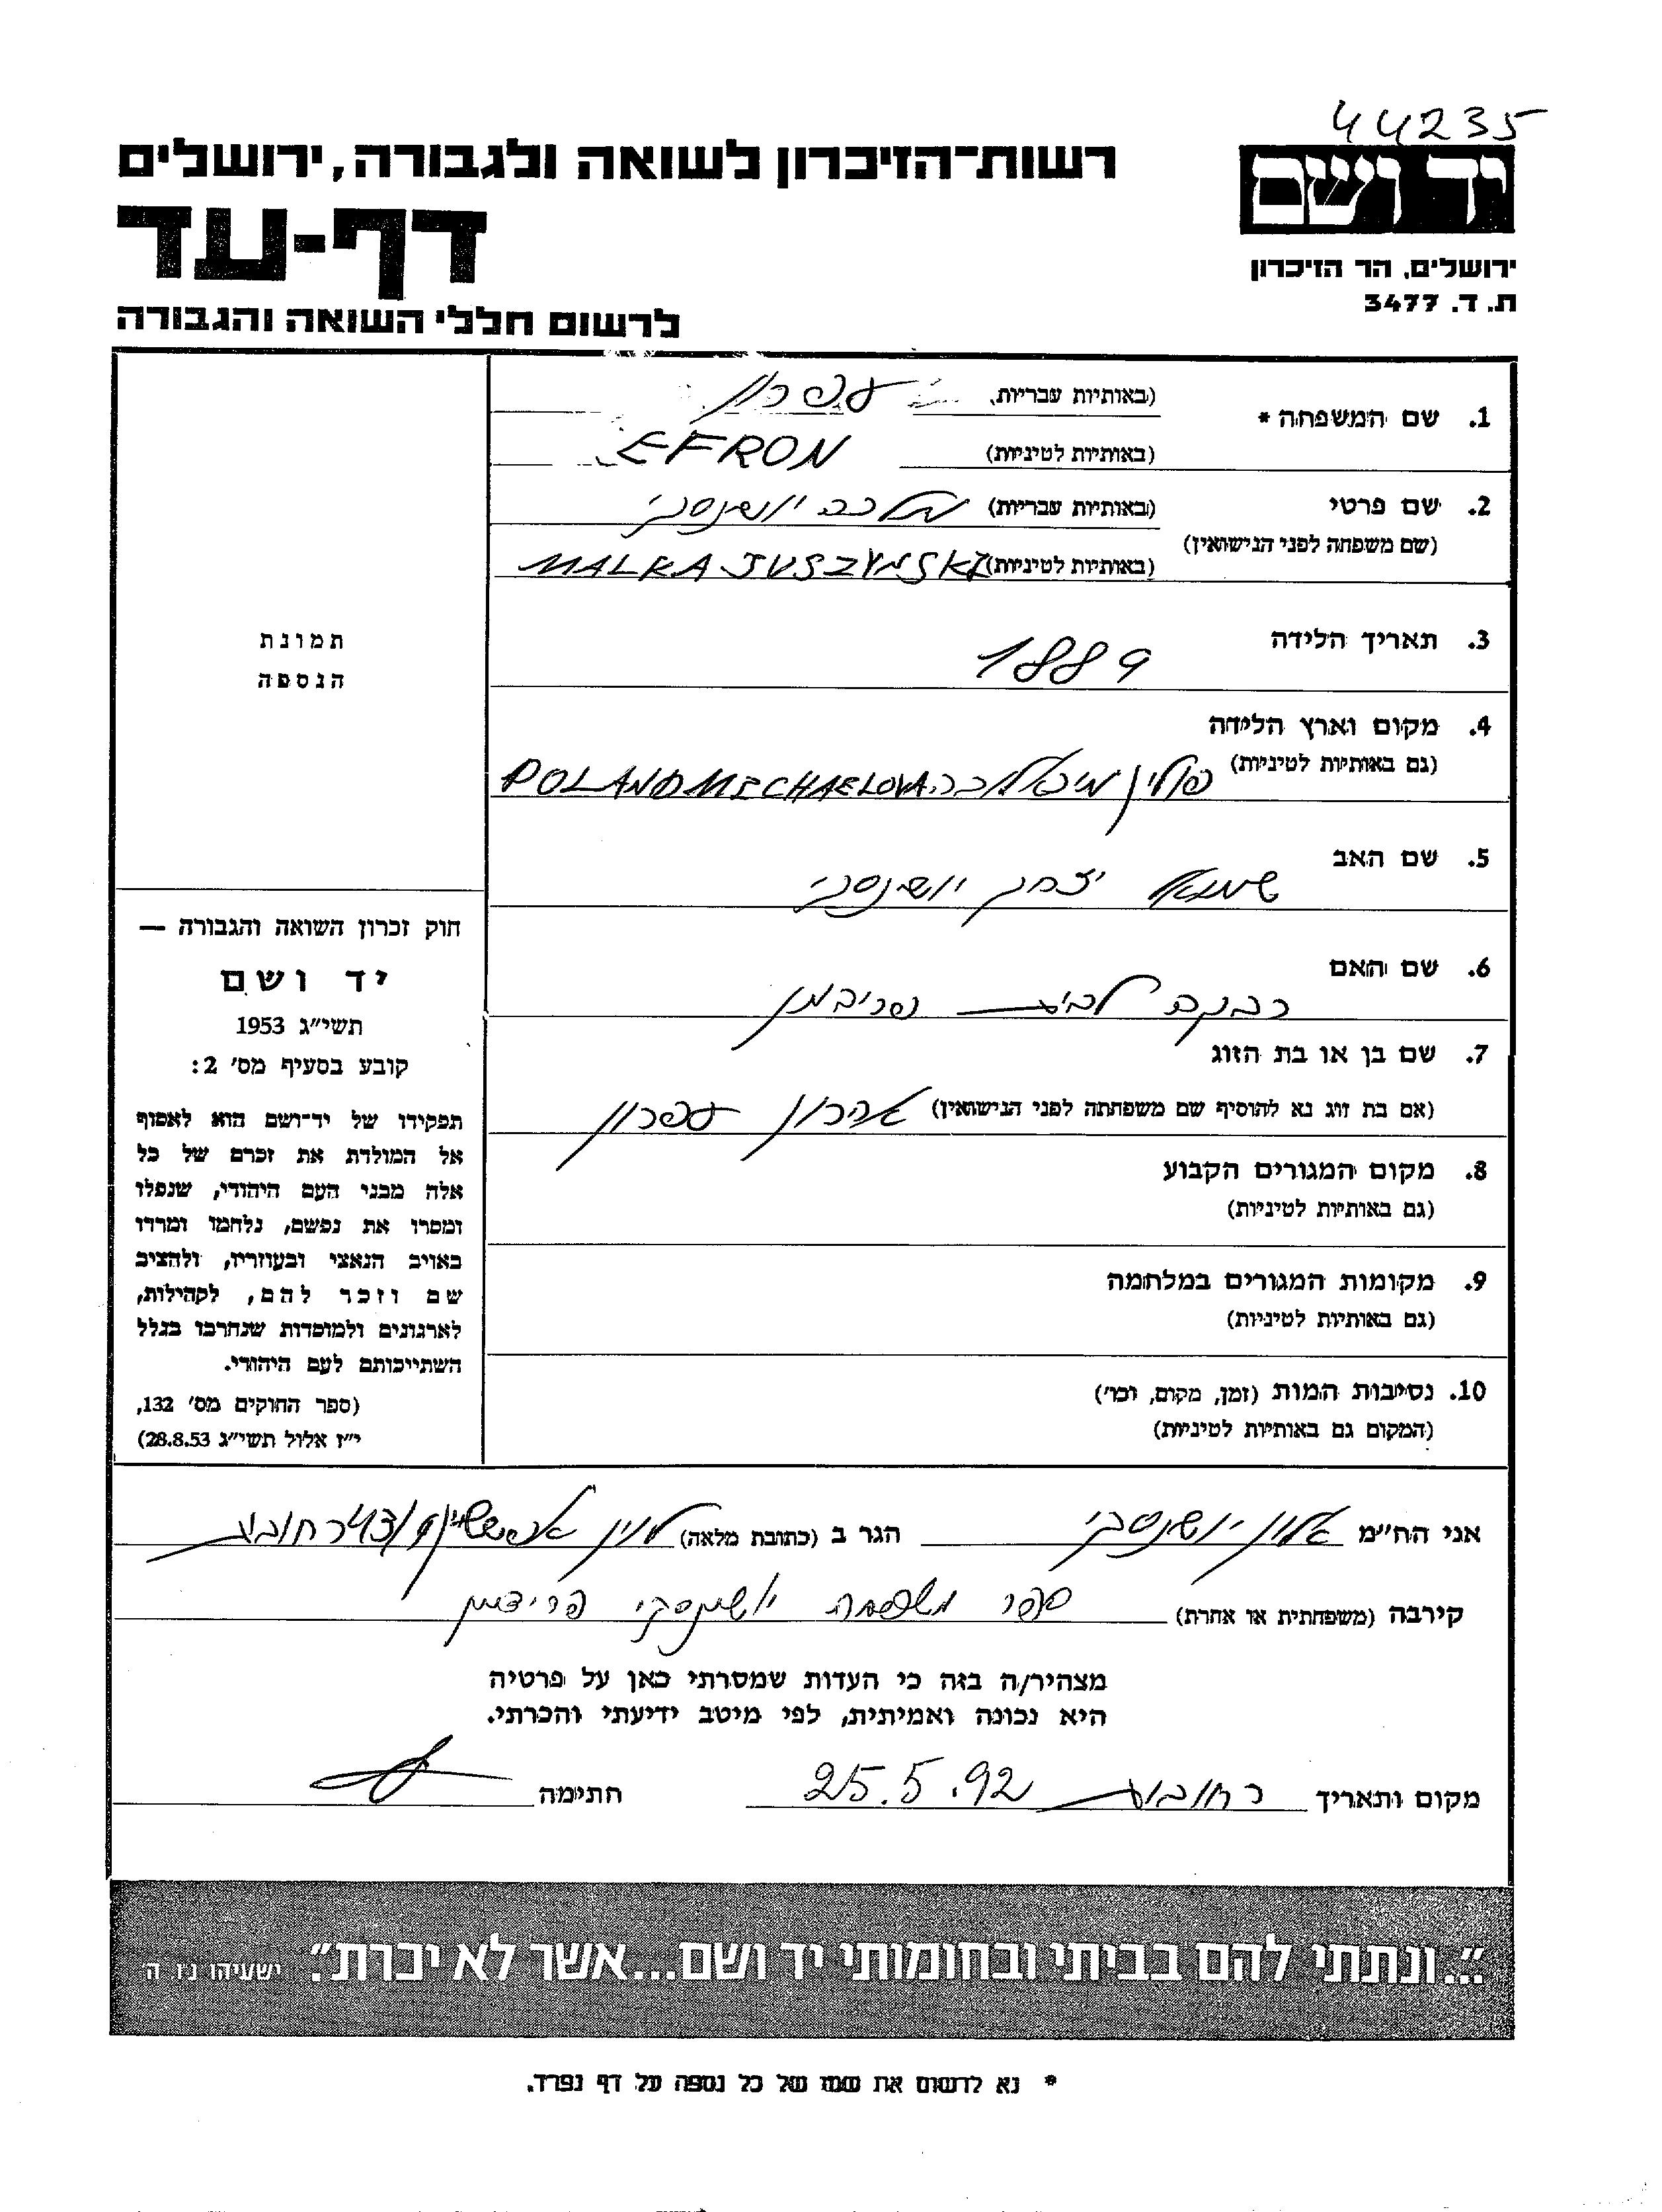 44235
יד ושם
ירושלים, הר הזיכרון
ת. ד. 3477
רשות־הזיכרון לשואה ולגבורה, ירושלים
דף-עד
לרשום חללי השואה והגבורה
1. שם המשפחה * (באותיות עבריות) עפרון
(באותיות לטיניות) EFRON
2. שם פרטי (באותיות עבריות) מלכה יושנסקי
(שם משפחה לפני הנישואין)
(באותיות לטיניות) MALKA JUSZYNSKI
3. תאריך הלידה 1889
4. מקום וארץ הלידה
(גם באותיות לטיניות) פולין מיכאלובה POLAND MICHAELOVA
5. שם האב שמואל יצחק יושנסקי
6. שם האם רבקה
7. שם בן או בת הזוג
(אם בת זוג נא להוסיף שם משפחתה לפני הנישואין) אהרון עפרון
8. מקום המגורים הקבוע
(גם באותיות לטיניות)
9. מקומות המגורים במלחמה
(גם באותיות לטיניות)
10. נסיבות המות (זמן, מקום, וכו')
(המקום גם באותיות לטיניות)
תמונת
הנספה
חוק זכרון השואה והגבורה —
יד ושם
תשי"ג 1953
קובע בסעיף מס' 2:
תפקידו של יד־ושם הוא לאסוף
אל המולדת את זכרם של כל
אלה מבני העם היהודי, שנפלו
ומסרו את נפשם, נלחמו ומרדו
באויב הנאצי ובעוזריו, ולהציב
שם וזכר להם, לקהילות,
לארגונים ולמוסדות שנחרבו בגלל
השתייכותם לעם היהודי.
(ספר החוקים מס' 132,
י"ז אלול תשי"ג 28.8.53)
אני הח"מ אלון יושנסקי הגר ב (כתובת מלאה) 43 רחובות
קירבה (משפחתית או אחרת) ספר משפחת יושינסקי פרידמן
מצהיר/ה בזה כי העדות שמסרתי כאן על פרטיה
היא נכונה ואמיתית, לפי מיטב ידיעתי והכרתי.
מקום ותאריך רחובות 25.5.92 חתימה
"...ונתתי להם בביתי ובחומותי יד ושם...אשר לא יכרת". ישעיהו נו ה
* נא לרשום את שמו של כל נספה על דף נפרד.